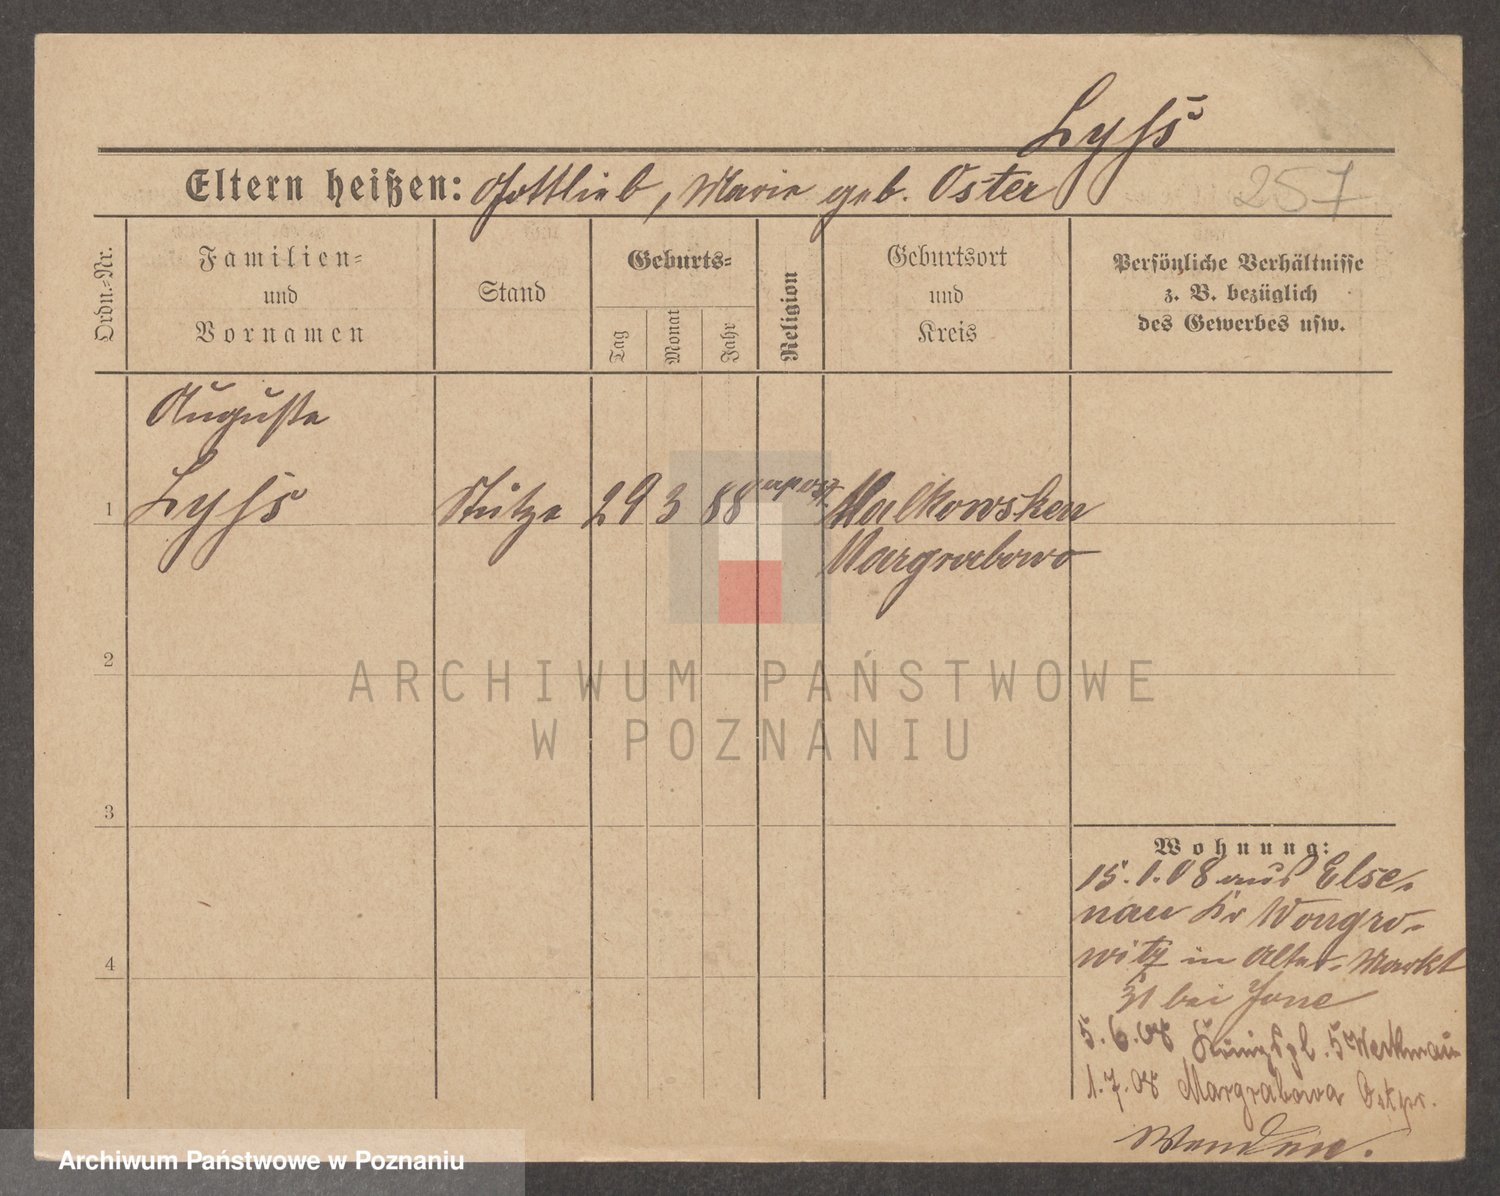 Lyhs
Eltern heißen: Gottlieb, Marie geb. Oster
257
Ordn.-Nr.
Familien-
und
Vornamen
Stand
Geburts-
Tag
Monat
Jahr
Religion
Geburtsort
und
Kreis
Persönliche Verhältnisse
z. B. bezüglich
des Gewerbes usw.
Auguste
1 Lyhs Stütze 29 3 88 Malkowsken
Margrabowo
2
ARCHIWUM PAŃSTWOWE
W POZNANIU
3
Wohnung:
15.1.08 aus Else-
nau Kr Wongro-
witz in Alter Markt
51 bei
4
5.6.08 Königspl. 5 Werkmann
1.7.08 Margrabowa Ostpr.
Wenden.
Archiwum Państwowe w Poznaniu